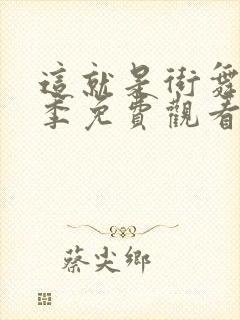 這就是街舞
季免費觀看
蔡尖鄉